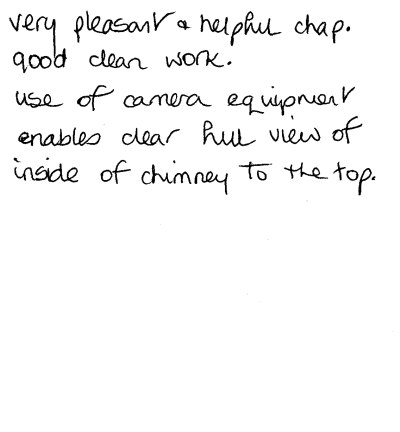 very pleasant & helpful chap.
good clean work.
use of camera equipment
enables clear full view of
inside of chimney to the top.